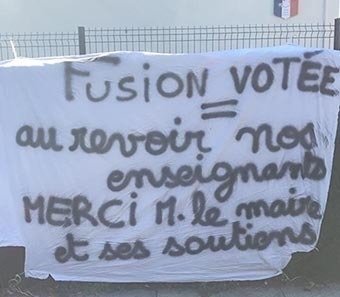 FUSION VOTÉE
=
au revoir nos
enseignants
MERCI M. le maire
et ses soutiens